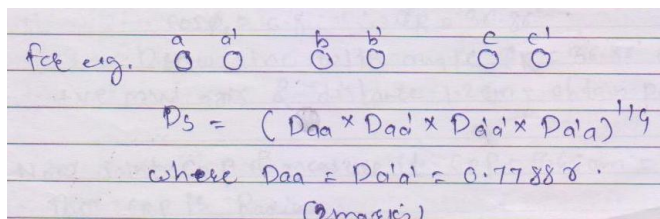 a a' b b' c c'
for eg. O O O O O O
Ds = (Daa × Daa' × Da'a' × Da'a)^1/4
where Daa = Da'a' = 0.7788 r.
(2marks)